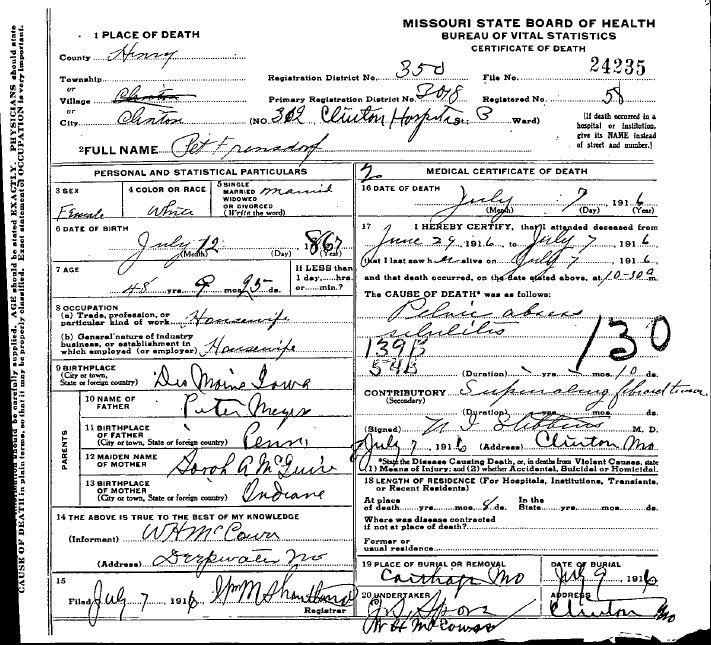 MISSOURI STATE BOARD OF HEALTH
BUREAU OF VITAL STATISTICS
CERTIFICATE OF DEATH
1 PLACE OF DEATH
County Henry
Township
or
Village Clinton
or
City Clinton
Registration District No. 350
File No. 24235
Primary Registration District No. 3018
Registered No. 58
(NO. 302 Clinton Hospital St. B Ward)
[If death occurred in a hospital or institution, give its NAME instead of street and number.]
2 FULL NAME Pet
PERSONAL AND STATISTICAL PARTICULARS
3 SEX Female
4 COLOR OR RACE White
5 SINGLE MARRIED WIDOWED OR DIVORCED (Write the word) Married
6 DATE OF BIRTH July 12 1867
(Month) (Day) (Year)
7 AGE 48 yrs. 9 mos. 25 ds.
If LESS than 1 day,....hrs. or....min.?
8 OCCUPATION
(a) Trade, profession, or particular kind of work Housewife
(b) General nature of industry business, or establishment in which employed (or employer) Housewife
9 BIRTHPLACE (City or town, State or foreign country) Des Moine Iowa
PARENTS
10 NAME OF FATHER Peter
11 BIRTHPLACE OF FATHER (City or town, State or foreign country) Penn
12 MAIDEN NAME OF MOTHER Sarah A McGuire
13 BIRTHPLACE OF MOTHER (City or town, State or foreign country) Indiane
14 THE ABOVE IS TRUE TO THE BEST OF MY KNOWLEDGE
(Informant) W H McCown
(Address) Deepwater Mo
15
Filed July 7 1916
Registrar
MEDICAL CERTIFICATE OF DEATH
2
16 DATE OF DEATH July 7 1916
(Month) (Day) (Year)
17 I HEREBY CERTIFY, that I attended deceased from
June 29 1916, to July 7 1916
that I last saw h alive on July 7 1916
and that death occurred, on the date stated above, at 10-30 a m.
The CAUSE OF DEATH* was as follows:
Pelvic
130
139B
54B
(Duration) yrs. mos. 10 ds.
CONTRIBUTORY (Secondary) fibroid tumor
(Duration) yrs. mos. ds.
(Signed) M. D.
July 7 1916 (Address) Clinton Mo
*State the Disease Causing Death, or, in deaths from Violent Causes, state (1) Means of Injury; and (2) whether Accidental, Suicidal or Homicidal.
18 LENGTH OF RESIDENCE (For Hospitals, Institutions, Transients, or Recent Residents)
At place of death yrs. mos. 8 ds. In the State yrs. mos. ds.
Where was disease contracted if not at place of death?
Former or usual residence
19 PLACE OF BURIAL OR REMOVAL Carthage Mo
DATE OF BURIAL July 9 1916
20 UNDERTAKER
W H McCown
ADDRESS Clinton Mo
should be carefully supplied. AGE should be stated EXACTLY. PHYSICIANS should state
CAUSE OF DEATH in plain terms, so that it may be properly classified. Exact statement of OCCUPATION is very important.